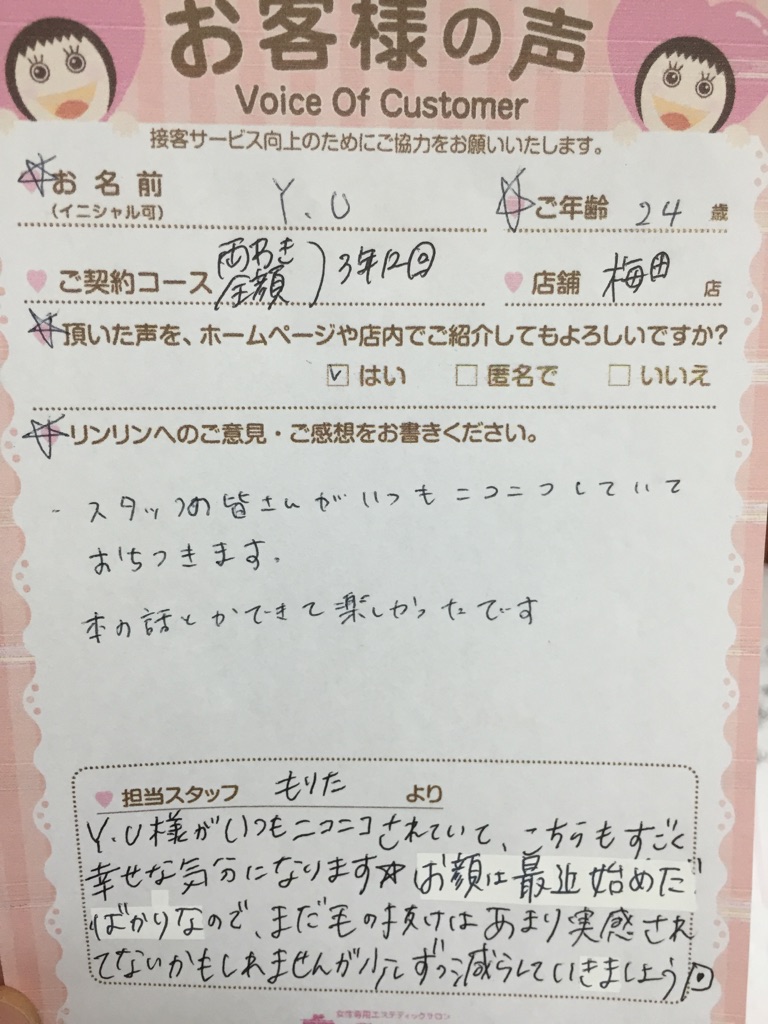 お客様の声
Voice Of Customer
接客サービス向上のためにご協力をお願いいたします。
お名前 Y.U ご年齢 24 歳
(イニシャル可)
ご契約コース 両わき 全顔 ) 3年12回 店舗 梅田 店
頂いた声を、ホームページや店内でご紹介してもよろしいですか?
☑はい □匿名で □いいえ
リンリンへのご意見・ご感想をお書きください。
・スタッフの皆さんがいつもニコニコしていて
おちつきます。
本の話とかできて楽しかったです
担当スタッフ もりた より
Y.U様がいつもニコニコされていて、こちらもすごく
幸せな気分になります☆お顔は最近始めた
ばかりなので、まだ毛の抜けはあまり実感され
てないかもしれませんが少しずつ減らしていきましょう
女性専用エステティックサロン